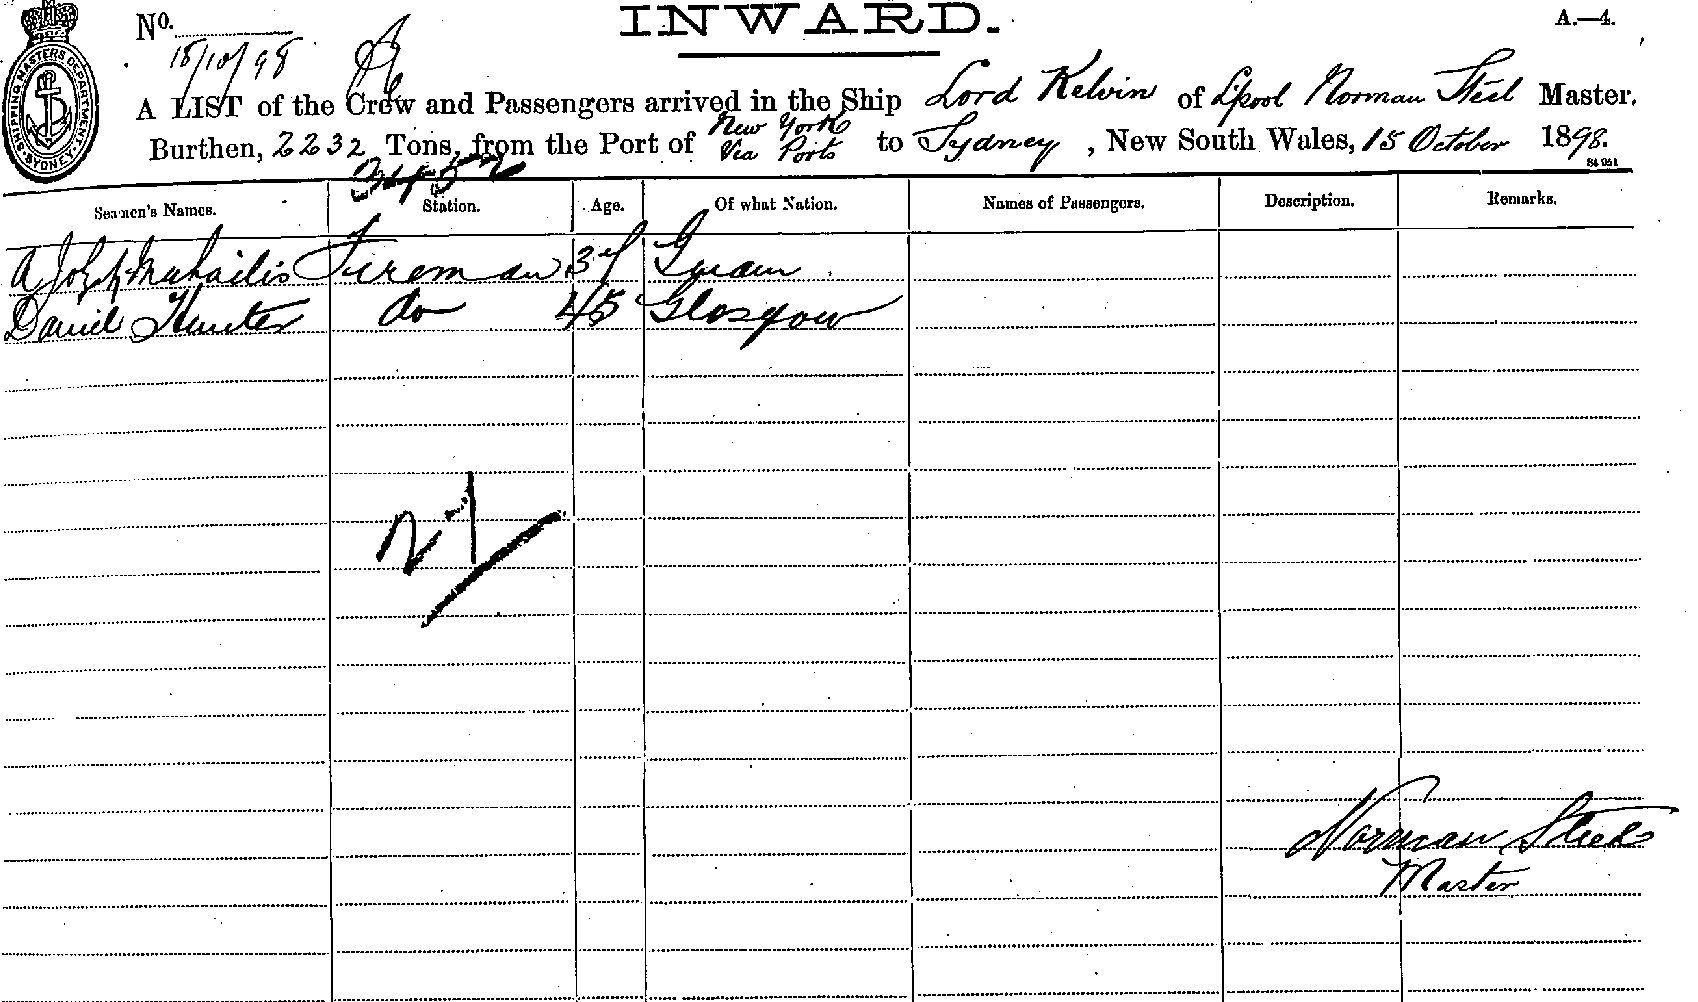 SHIPPING MASTERS DEPARTMENT. SYDNEY.
No.
INWARD.
A.—4.
18/10/98
A LIST of the Crew and Passengers arrived in the Ship Lord Kelvin of L'pool Norman Steel Master.
Burthen, 2232 Tons, from the Port of New York Via Ports to Sydney, New South Wales, 15 October 1898.
3452
Seamen's Names. Station. Age. Of what Nation. Names of Passengers. Description. Remarks.
A Fireman
Daniel Hunter do 45 Glasgow
Norman Steel
Master